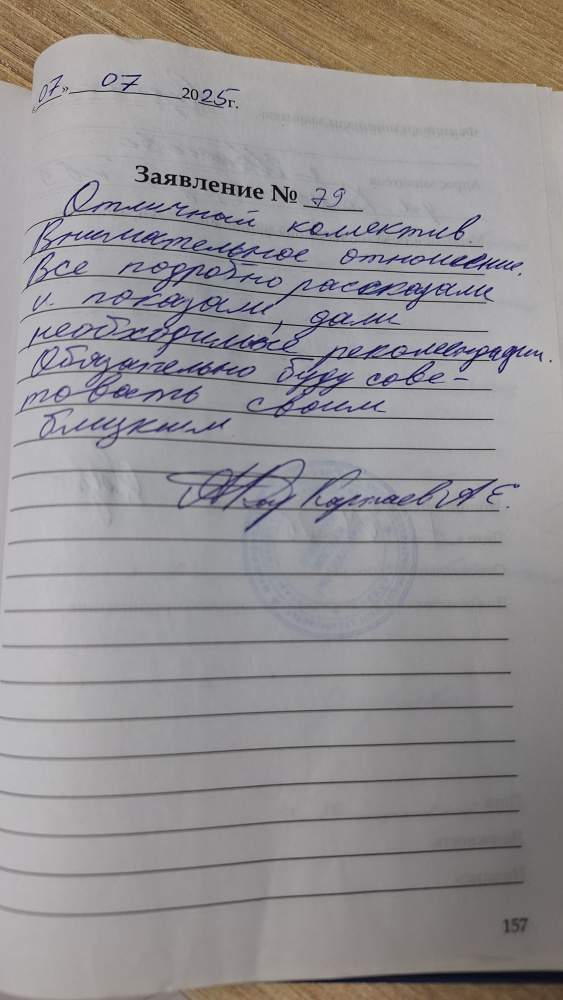 «07» 07 2025 г.
Заявление № 79
Отличный коллектив.
Внимательное отношение.
Все подробно рассказали
и показали, дали
необходимые рекомендации.
Обязательно буду сове-
товать своим
близким
А Е.
157